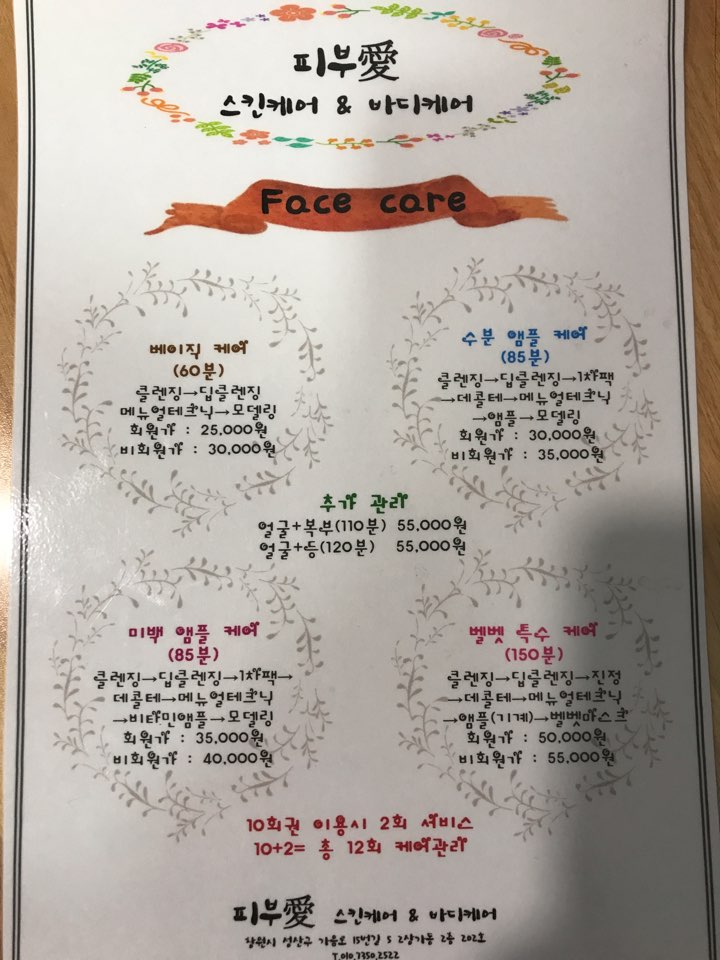 피부愛
스킨케어 & 바디케어
Face care
베이직 케어
(60분)
클렌징→딥클렌징
메뉴얼테크닉→모델링
회원가 : 25,000원
비회원가 : 30,000원
수분 앰플 케어
(85분)
클렌징→딥클렌징→1차팩
→데콜테→메뉴얼테크닉
→앰플→모델링
회원가 : 30,000원
비회원가 : 35,000원
추가 관리
얼굴+복부(110분) 55,000원
얼굴+등(120분) 55,000원
미백 앰플 케어
(85분)
클렌징→딥클렌징→1차팩→
데콜테→메뉴얼테크닉
→비타민앰플→모델링
회원가 : 35,000원
비회원가 : 40,000원
벨벳 특수 케어
(150분)
클렌징→딥클렌징→진정
→데콜테→메뉴얼테크닉
→앰플(기계)→벨벳마스크
회원가 : 50,000원
비회원가 : 55,000원
10회권 이용시 2회 서비스
10+2= 총 12회 케어관리
피부愛 스킨케어 & 바디케어
창원시 성산구 가음로 15번길 5 2상가동 2층 202호
T.010.7350.2522